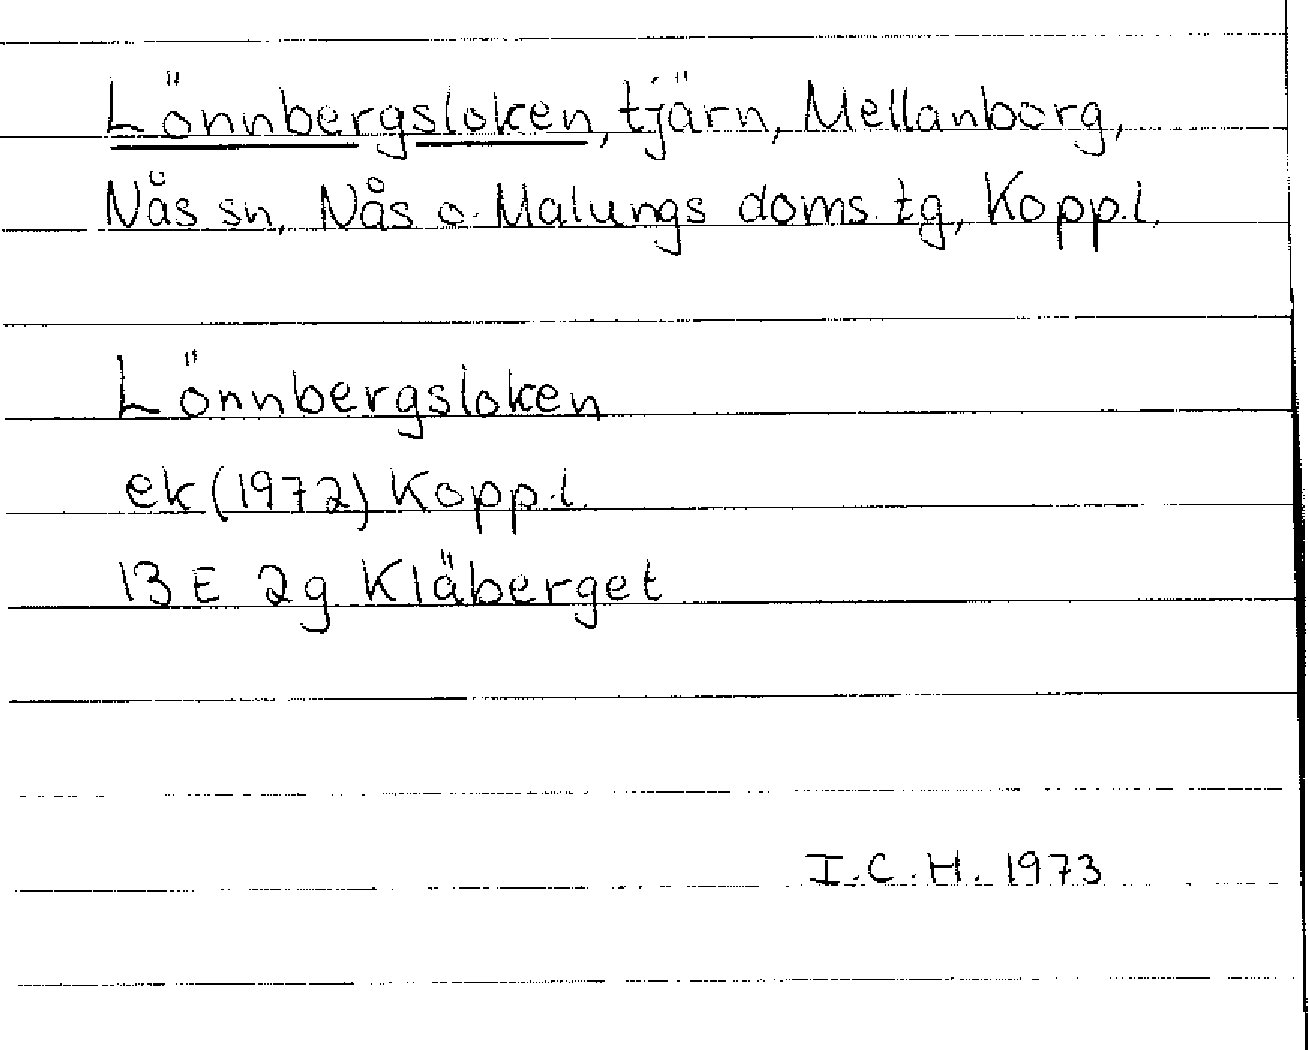 Lönnbergsloken, tjärn, Mellanborg,
Nås sn, Nås o. Malungs doms. tg, Kopp.l.
Lönnbergsloken
ek (1972) Kopp.l.
13 E 2g Kläberget
I.C.H. 1973